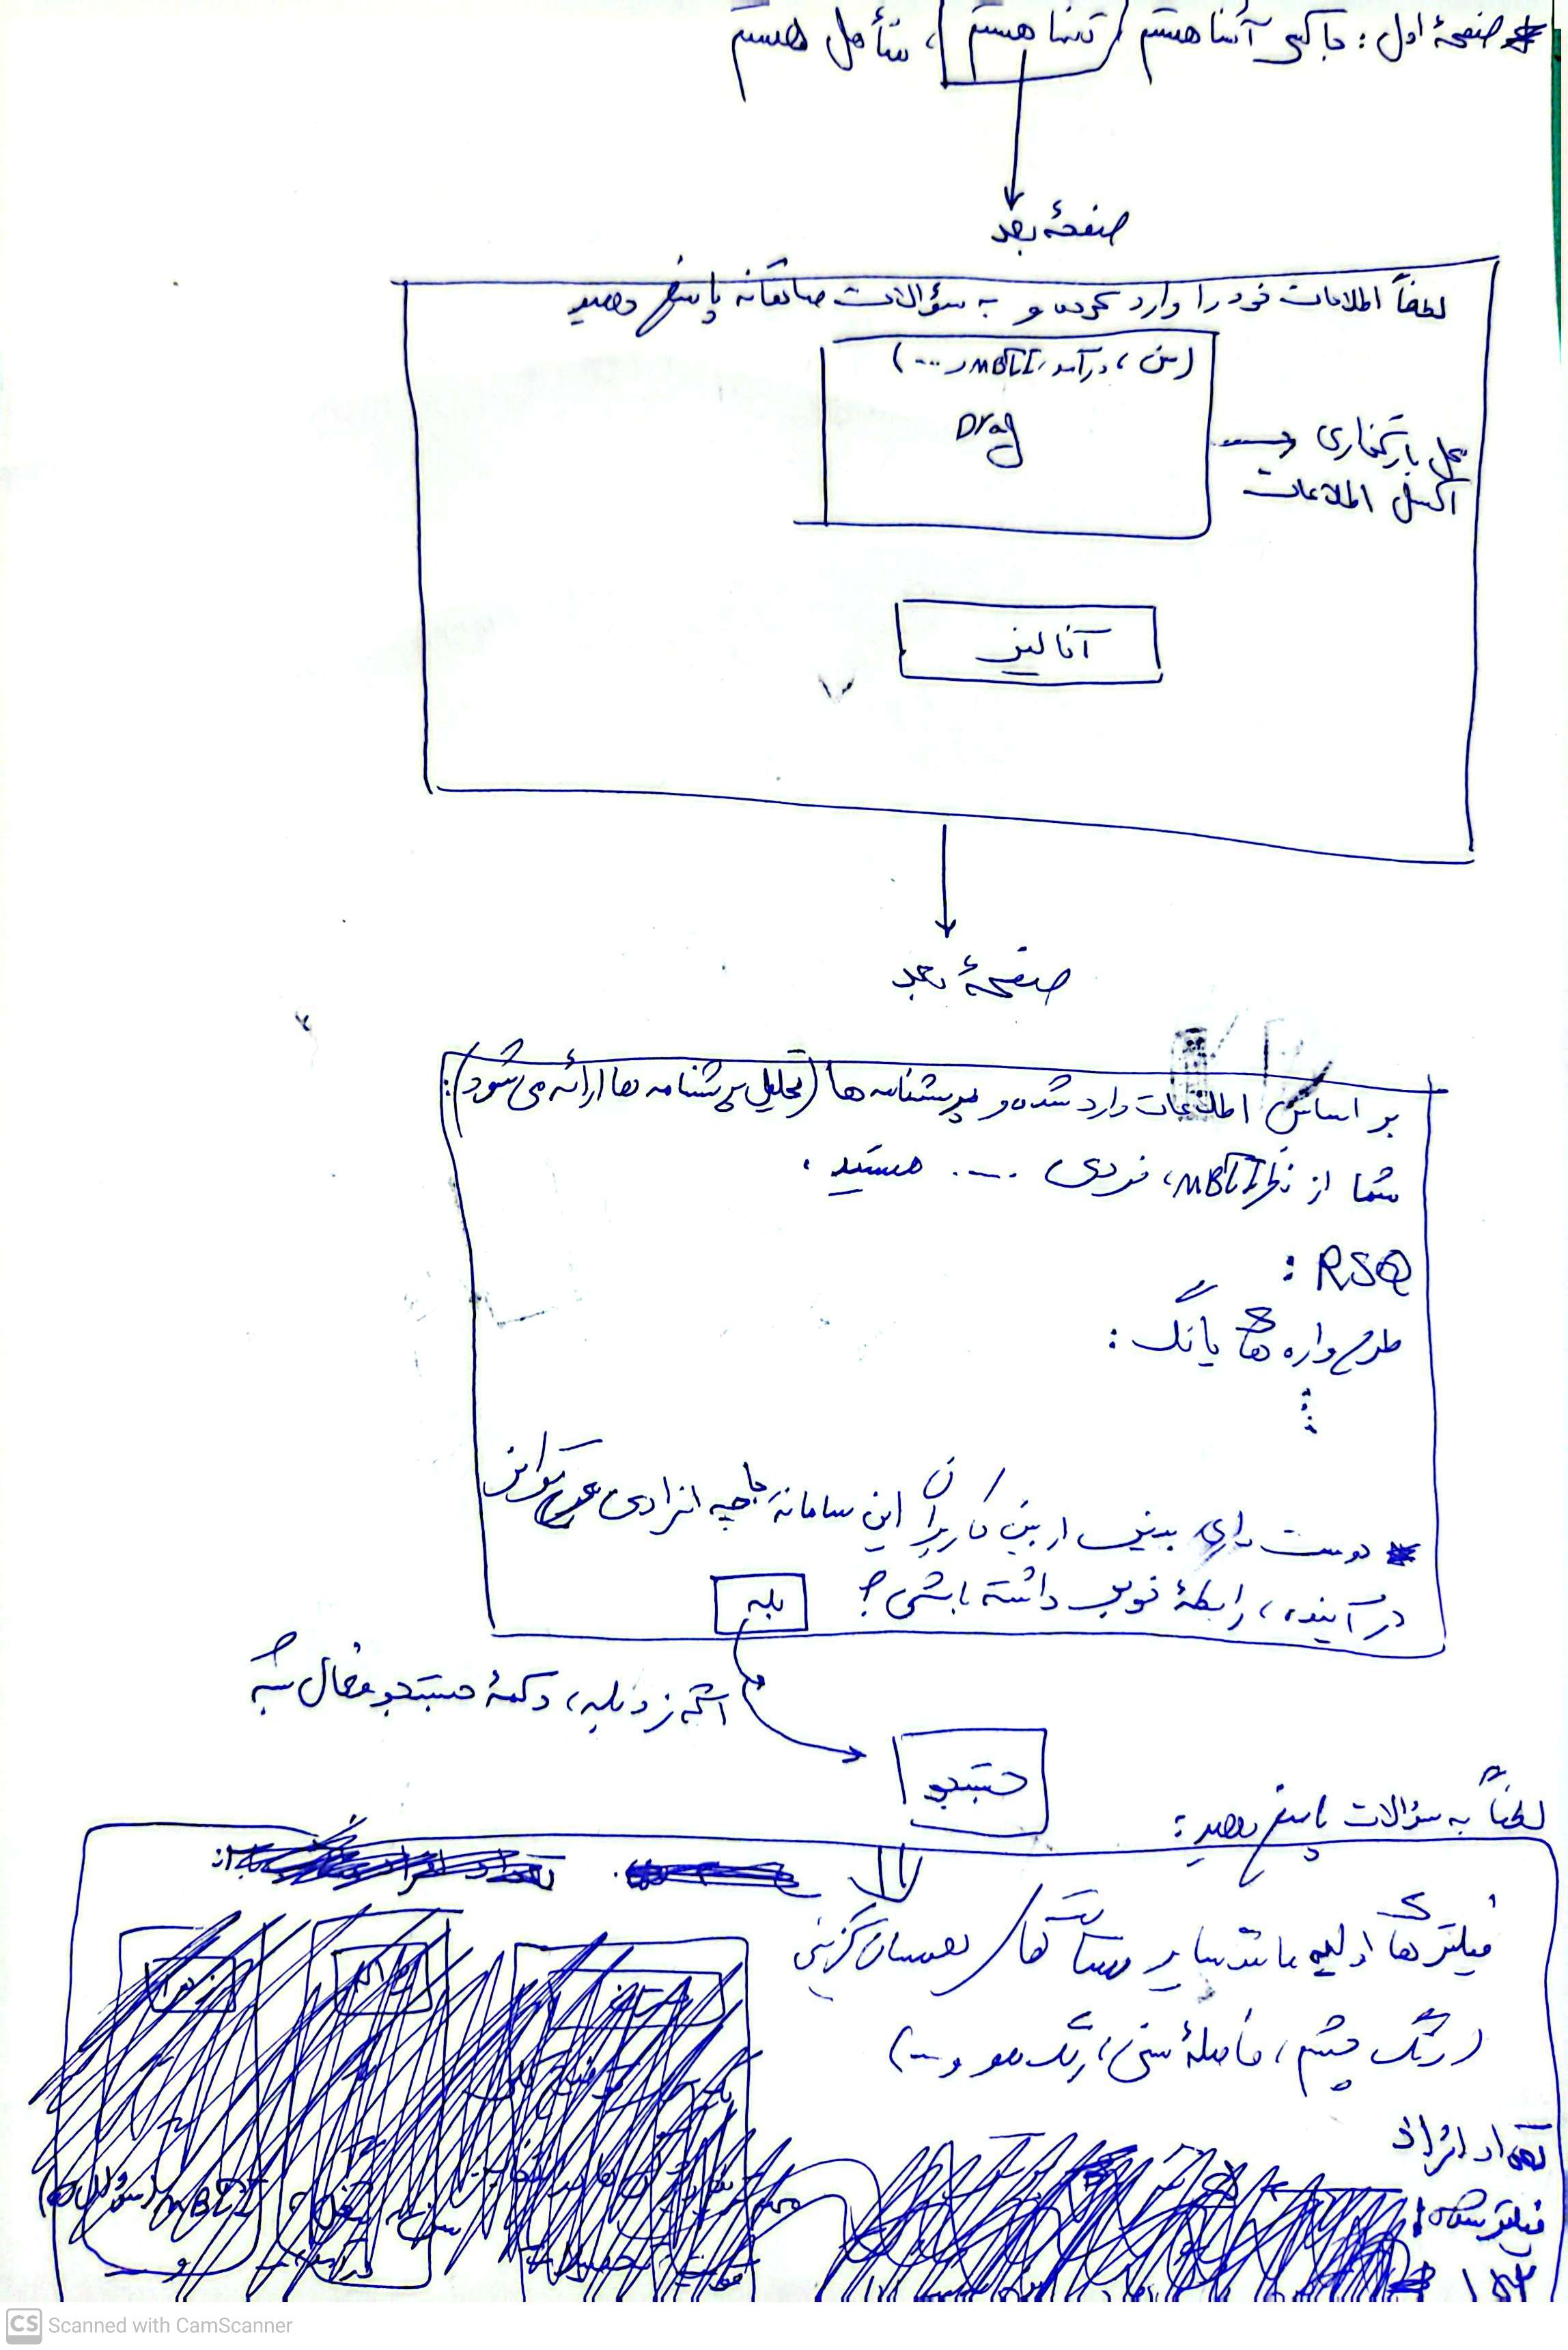 * صفحهٔ اول : با کسی آشنا هستم / تنها هستم ، متأهل هستم
صفحهٔ بعد
لطفاً اطلاعات خود را وارد کرده و به سؤالات صادقانه پاسخ دهید
(سن ، درآمد ، MBTI و ...)
Drag
محل بارگذاری
اکسل اطلاعات
آنالیز
صفحهٔ بعد
بر اساس اطلاعات وارد شده و پرسشنامه ها (تحلیل پرسشنامه ها ارائه می شود) :
شما از نظر MBTI ، فردی .... هستید .
RSQ :
طرح واره های یانگ :
* دوست داری بدونی از بین کاربران این سامانه با چه افرادی می توانی
در آینده ، رابطهٔ خوبی داشته باشی ؟
بله
اگه زد بله ، دکمهٔ جستجو فعال شه
جستجو
لطفاً به سؤالات پاسخ دهید :
فیلترهای اولیه مانند سایر سایت های همسان گزینی
(رنگ چشم ، فاصلهٔ سنی ، رنگ مو و ...)
تعداد افراد
فیلتر شده :
MBTI
CS Scanned with CamScanner